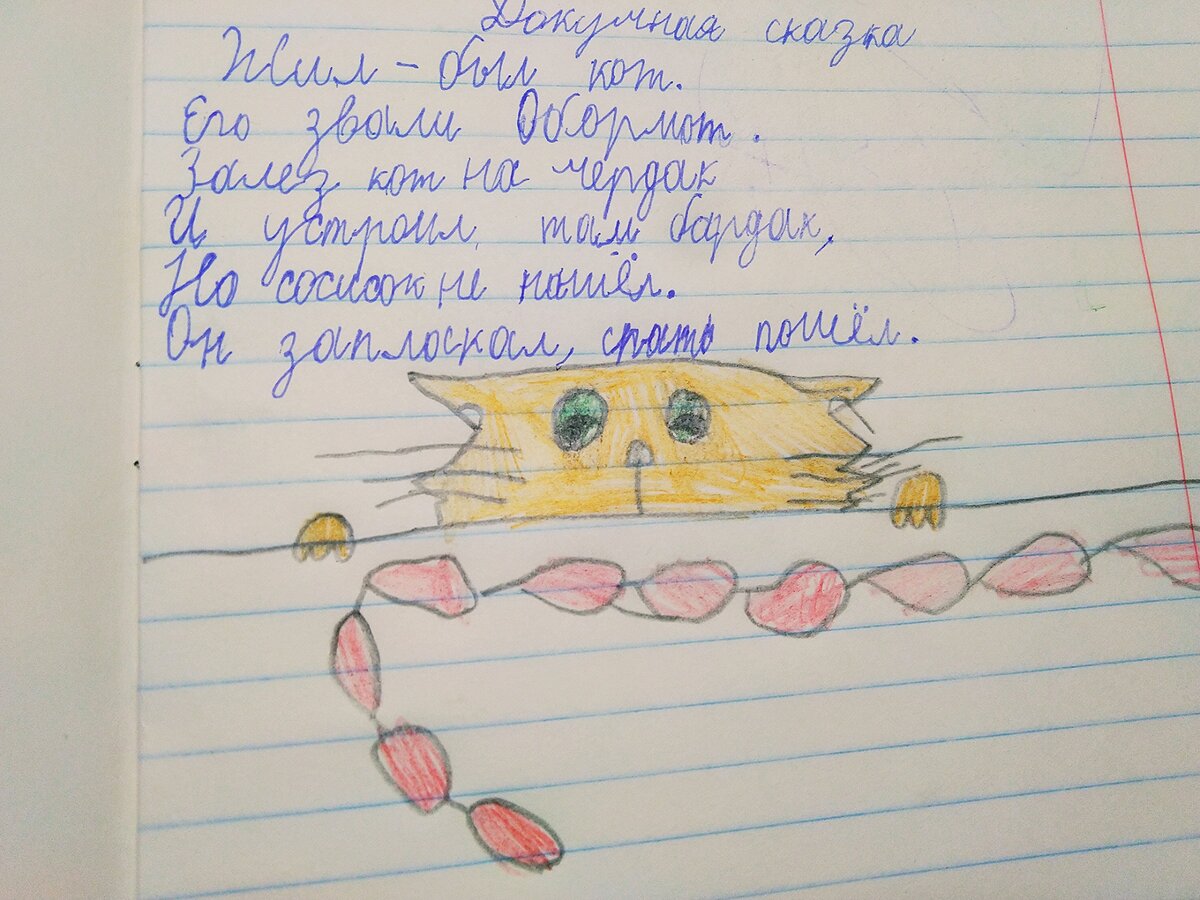 Докучная сказка
Жил-был кот.
Его звали Обормот.
Залез кот на чердак
И устроил там бардак,
Но сосисок не нашёл.
Он заплоскал, спать пошёл.